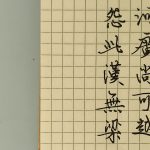 河廣尚可越
怨此漢無梁